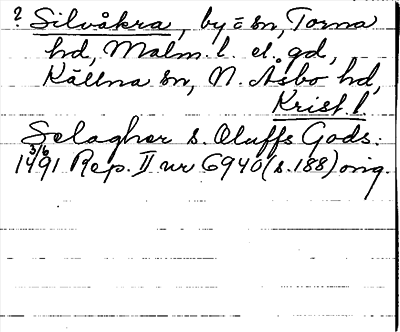 ? Silvåkra, by = sn, Torna
hd, Malm. l. el. gd,
Källna sn, N. Åsbo hd,
Krist. l.
Selagher s. Oluffs Gods:
3/6
1491 Rep. II nr 6940 (s. 188) orig.